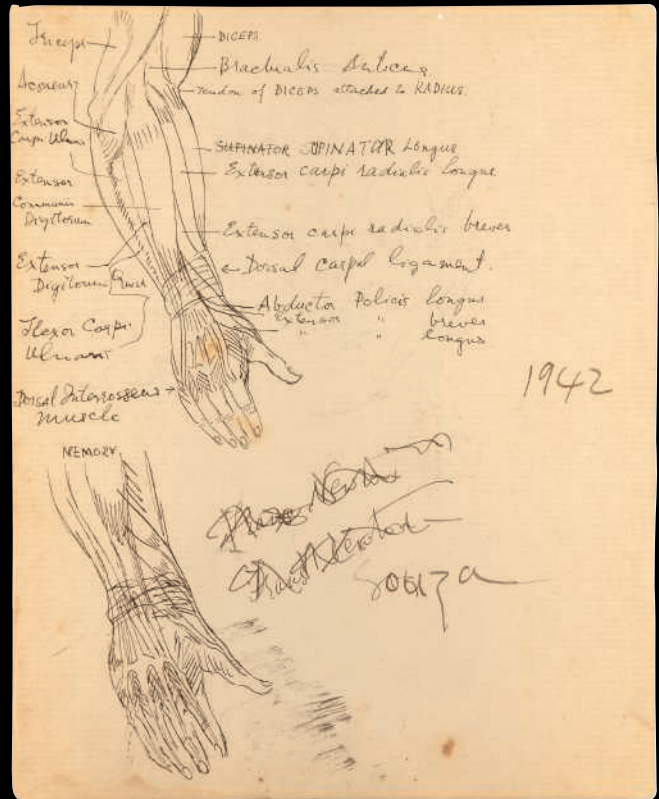 Triceps
Aconeus
Extensor
Carpi Ulnaris
Extensor
Communis
Digitorum
Extensor
Digitorum
Flexor Carpi
Ulnaris
Dorsal Interrosseus
Muscle
DICEPS
Brachialis Anticus
Tendon of DICEPS attached to RADIUS.
SUPINATOR SUPINATOR Longus
Extensor carpi radialis longus
Extensor carpi radialis breves
Dorsal carpal ligament.
Abductor Policis longus
Extensor " breves
" " longus
1942
MEMORY
Souza